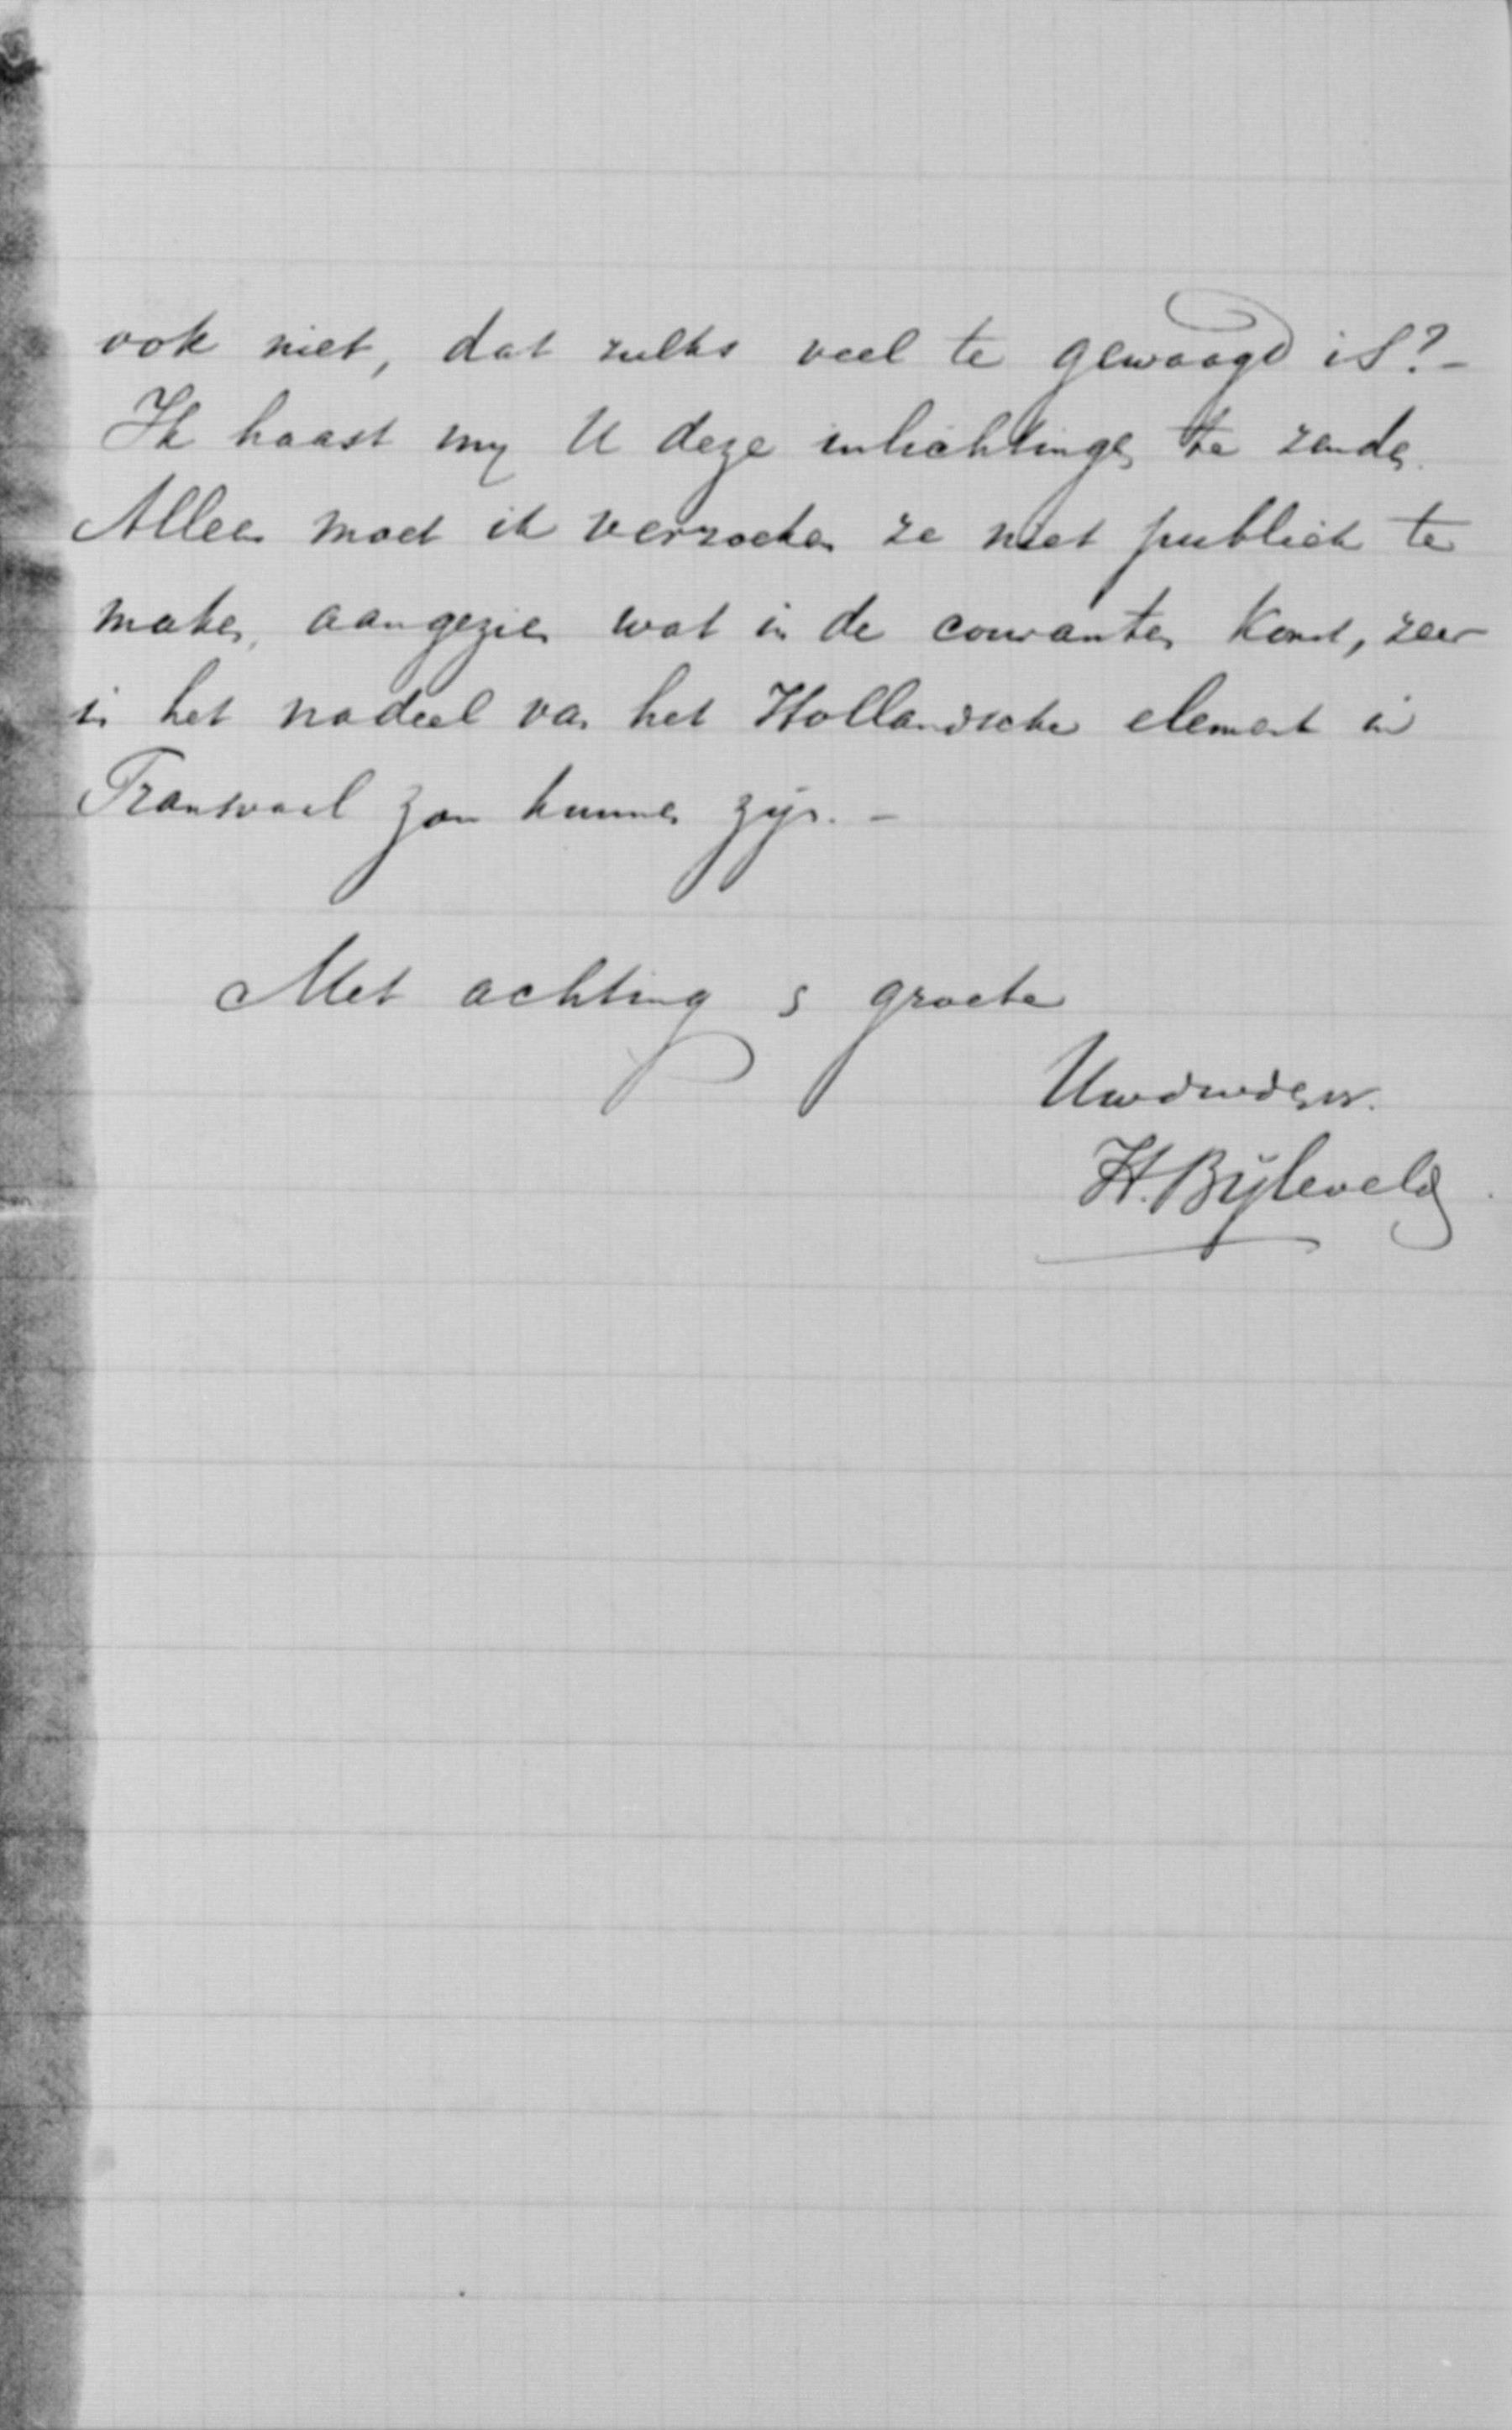 ook niet, dat zulks veel te gewaagd is? -
Ik haast mij U deze inlichtingen te zenden.
Alleen moet ik verzoeken ze niet publiek te
maken, aangezien wat in de couranten komt, zeer
in het nadeel van het Hollandsche element in
Transvaal zou kunnen zijn. -
Met achting & groeten
Uwdwdenr.
H. Bijleveld